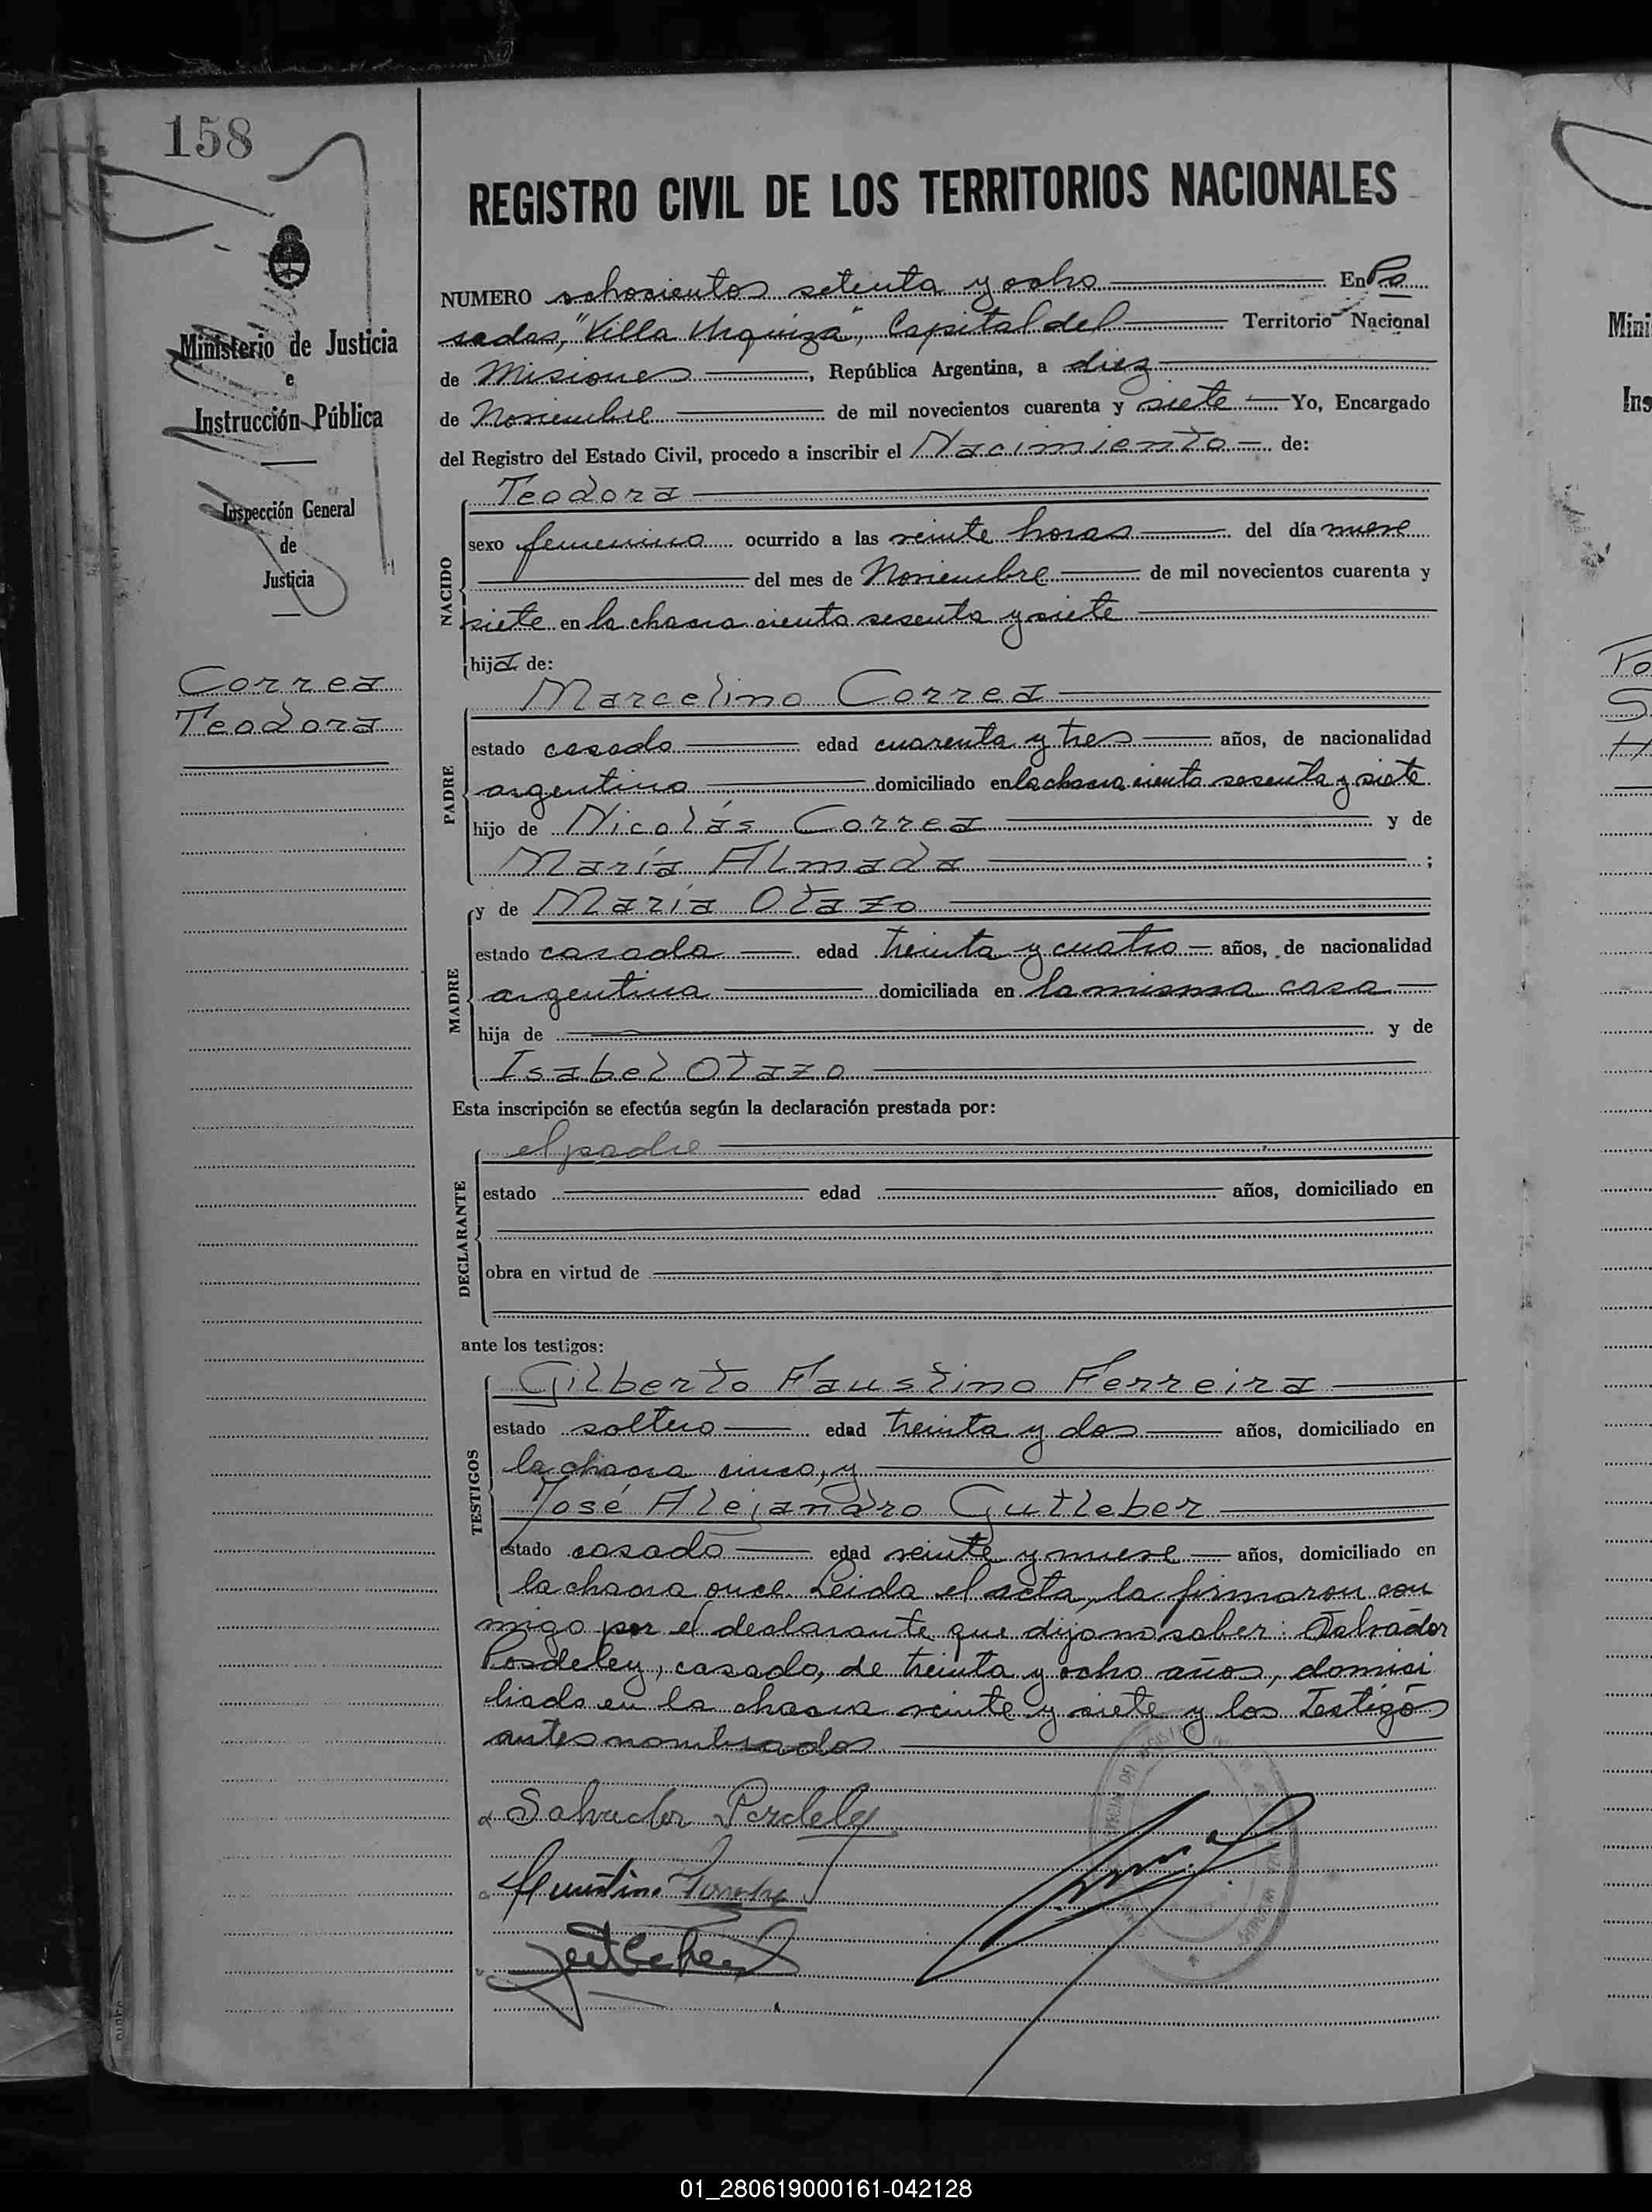 158
REGISTRO CIVIL DE LOS TERRITORIOS NACIONALES
Ministerio de Justicia
e
Instrucción Pública
Inspección General
de
Justicia
Correa
Teodora
NUMERO ochocientos setenta y ocho En Po
sadas, "Villa Urquiza", Capital del Territorio Nacional
de Misiones, República Argentina, a diez
de Noviembre de mil novecientos cuarenta y siete Yo, Encargado
del Registro del Estado Civil, procedo a inscribir el Nacimiento de:
NACIDO
Teodora
sexo femenino ocurrido a las veinte horas del día nueve
del mes de Noviembre de mil novecientos cuarenta y
siete en la chacra ciento sesenta y siete
hija de:
PADRE
Marcelino Correa
estado casado edad cuarenta y tres años, de nacionalidad
argentino domiciliado en la chacra ciento sesenta y siete
hijo de Nicolás Correa y de
María Almada ;
MADRE
y de María Otazo
estado casada edad treinta y cuatro años, de nacionalidad
argentina domiciliada en la misma casa
hija de y de
Isabel Otazo
Esta inscripción se efectúa según la declaración prestada por:
DECLARANTE
el padre
estado edad años, domiciliado en
obra en virtud de
ante los testigos:
TESTIGOS
Gilberto Faustino Ferreira
estado soltero edad treinta y dos años, domiciliado en
la chacra cinco, y
José Alejandro Gutleber
estado casado edad veinte y nueve años, domiciliado en
la chacra once. Leida el acta, la firmaron con
migo por el declarante que dijo no saber: Salvador
Posdeley, casado, de treinta y ocho años, domici
liado en la chacra veinte y siete y los testigos
antes nombrados
Salvador Posdeley
Mini
Ins
Po
S
H
01_280619000161-042128